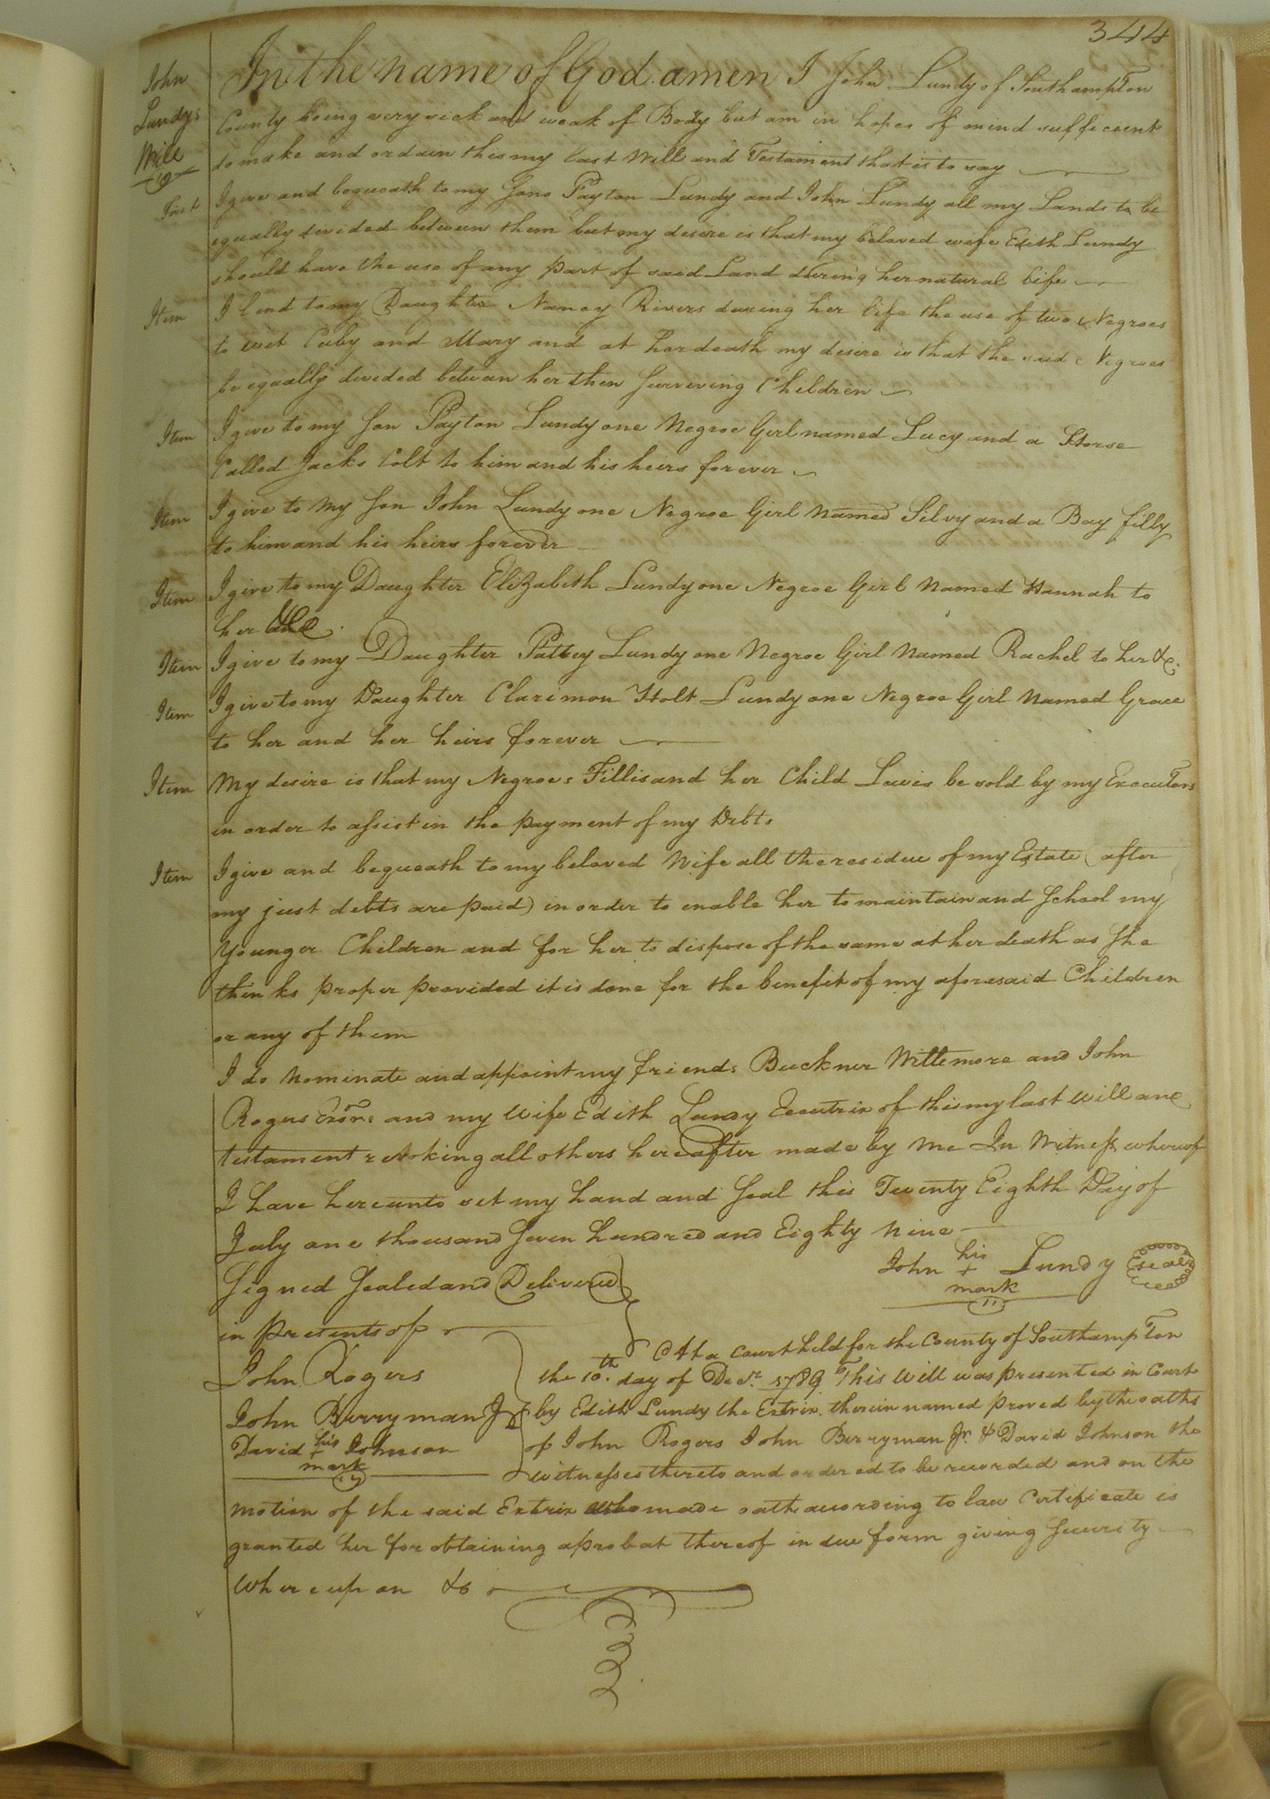 344
John
Lundys
Will
In the name of God amen I John Lundy of Southampton
County being very sick and weak of Body but am in hopes of mind suffecient
to make and ordain this my last Will and Testament that is to say
First I give and bequeath to my Sons Payton Lundy and John Lundy all my Lands to be
equally devided between them but my desire is that my beloved wife Edith Lundy
should have the use of any part of said Land during her natural life
Item I lend to my Daughter Nancy Rivers during her life the use of two Negroes
to wit Cuby and Mary and at her death my desire is that the said Negroes
be equally devided between her then Surviving Children
Item I give to my Son Payton Lundy one Negroe Girl named Lucy and a Horse
Called Jacks Colt to him and his heirs forever
Item I give to my Son John Lundy one Negroe Girl Named Silvy and a Bay filly
to him and his heirs forever
Item I give to my Daughter Elizabeth Lundy one Negroe Girl Named Hannah to
her &c.
Item I give to my Daughter Pattey Lundy one Negroe Girl Named Rachel to her &c.
Item I give to my Daughter Clarimon Holt Lundy one Negroe Girl Named Grace
to her and her heirs forever
Item My desire is that my Negroes Fillis and her Child Lewis be sold by my Executors
in order to assist in the payment of my Debts
Item I give and bequeath to my beloved Wife all the residue of my Estate (after
my just debts are paid) in order to enable her to maintain and School my
Younger Children and for her to dispose of the same at her death as She
thinks proper provided it is done for the benefit of my aforesaid Children
or any of them
I do Nominate and appoint my friends Buckner Wittemore and John
Rogers Exors and my Wife Edith Lundy Executrix of this my last Will and
testament revoking all others hereafter made by me In Witness whereof
I have hereunto set my hand and Seal this Twenty Eighth Day of
July one thousand Seven hundred and Eighty Nine
Signed Sealed and Delivered
in presents of
John his + mark Lundy (seal)
John Rogers
John Berryman Jr
David his + mark Johnson
At a Court held for the County of Southampton
the 10th. day of Decr. 1789 This Will was presented in Court
by Edith Lundy the Extrix. therein named proved by the oaths
of John Rogers John Berryman Jr. & David Johnson the
witnesses thereto and ordered to be recorded and on the
motion of the said Extrix who made oath according to law Certificate is
granted her for obtaining a probat thereof in due form giving Security
Whereupon &c